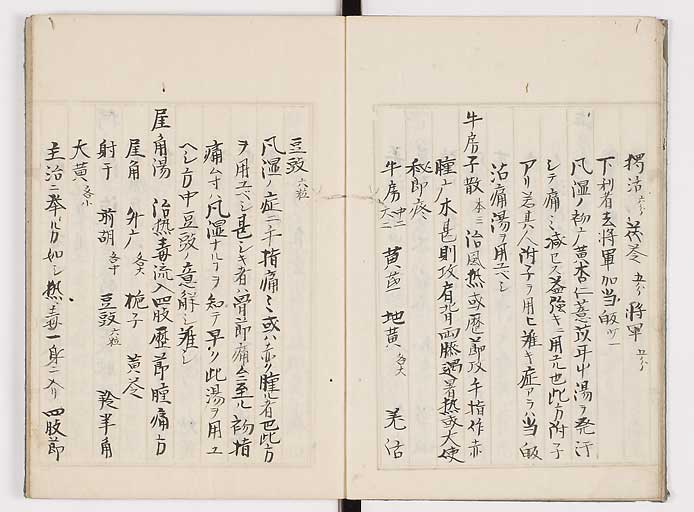 獨活 六分 茯苓 五分 將軍 五分
下利者去將軍加當皈
凡湿ノ初ハ麻黄杏仁薏苡甘草湯ヲ発汗
シテ痛ミ减セス益強キニ用ユ也此方附子
アリ若其人附子ヲ用ヒ難キ症アラハ当皈
沾痛湯ヲ用ユベシ
牛房子散 本三 治風熱或歴節攻手指作赤
腫 木甚則攻肩背両膝遇暑熱或大便
秘即疼
牛房 黄 地黄 各大 羌活
豆豉 六粒
凡湿ノ症ニ手指痛ミ或ハ赤ク腫ル者也此方
ヲ用ユベシ甚シキ者ハ骨節痛ムニ至ル初指
痛ム寸ハ凡湿ナルヿヲ知テ早ク此湯ヲ用ユ
ヘシ方中豆豉ノ意解シ難シ
犀角湯 治熱毒流入四肢歴節腫痛方
犀角 升广 各大 梔子 黄苓
射干 前胡 各中 豆豉 六粒 羚羊角
大黄 各小
主治ニ挙ル方如シ熱毒一身ニ入リ四肢節